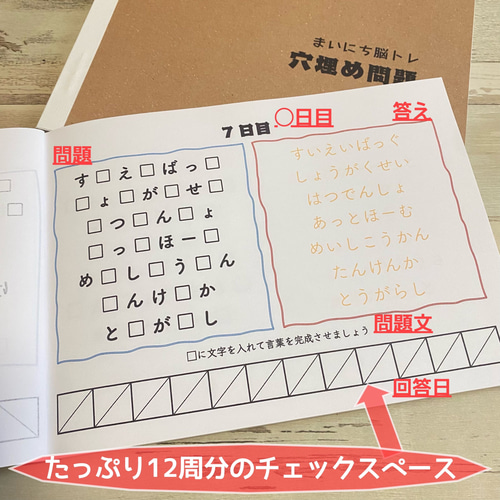 まいにち脳トレ
穴埋め問題
7日目
〇日目
答え
問題
す□え□ばっ□
□ょ□が□せ□
□つ□ん□ょ
□っ□ほー□
め□し□う□ん
□んけ□か
と□が□し
すいえいばっぐ
しょうがくせい
はつでんしょ
あっとほーむ
めいしこうかん
たんけんか
とうがらし
問題文
□に文字を入れて言葉を完成させましょう
回答日
たっぷり12周分のチェックスペース